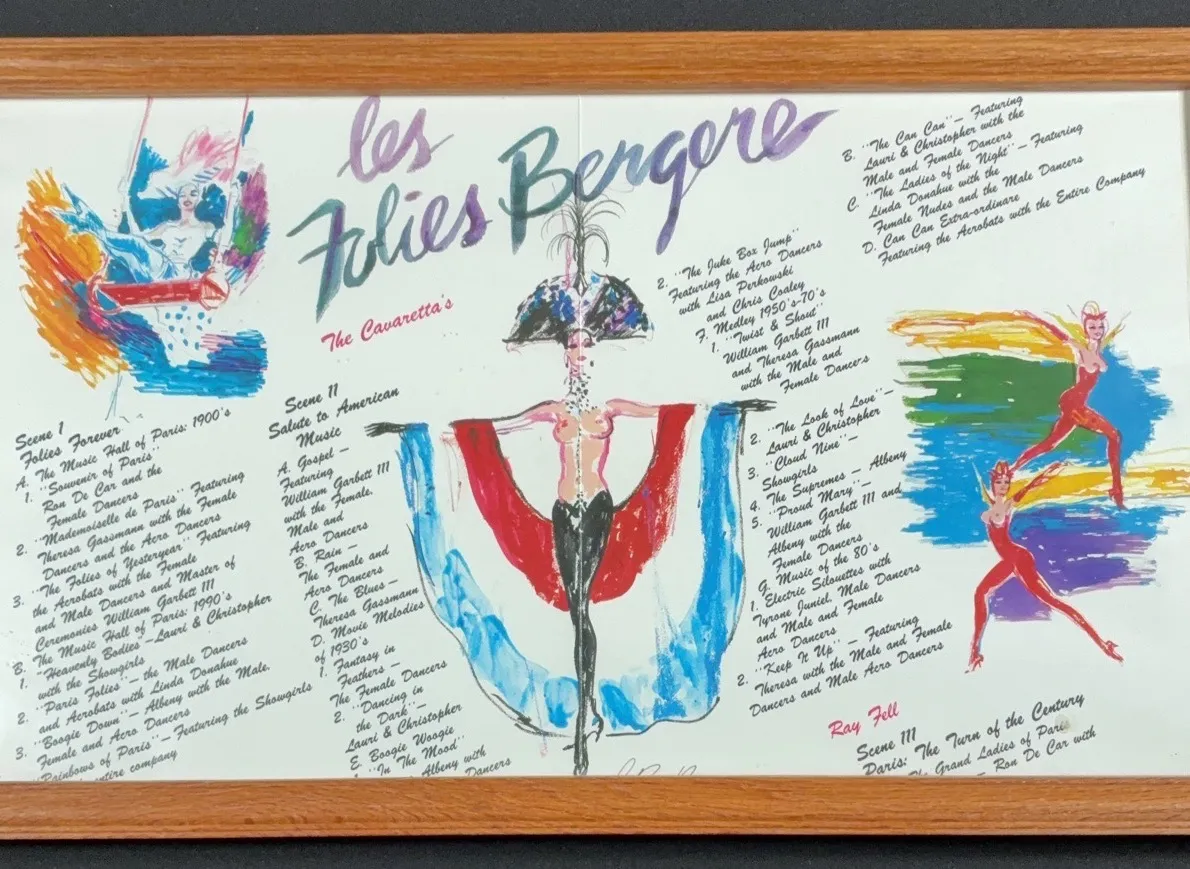 les
Folies Bergere
The Cavaretta's
Scene 1
Folies Forever
A. The Music Hall of Paris: 1900's
1. "Souvenir of Paris"
Ron De Car and the
Female Dancers
2. "Mademoiselle de Paris" Featuring
Theresa Gassmann with the Female
Dancers and the Acro Dancers
3. "The Folies of Yesteryear" Featuring
the Acrobats with the Female
and Male Dancers and Master of
Ceremonies William Garbett 111
B. The Music Hall of Paris: 1990's
1. "Heavenly Bodies"-Lauri & Christopher
with the Showgirls
2. "Paris Folies" - the Male Dancers
and Acrobats with Linda Donahue
3. "Boogie Down" - Albeny with the Male,
Female and Acro Dancers
"Rainbows of Paris" - Featuring the Showgirls
entire company
Scene 11
Salute to American
Music
A. Gospel -
Featuring
William Garbett 111
with the Female,
Male and
Acro Dancers
B. Rain -
The Female and
Acro Dancers
C. The Blues -
Theresa Gassmann
D. Movie Melodies
of 1930's
1. Fantasy in
Feathers -
The Female Dancers
2. "Dancing in
the Dark" -
Lauri & Christopher
E. Boogie Woogie
1. "In The Mood"
Albeny with
Dancers
2. "The Juke Box Jump"
Featuring the Acro Dancers
with Lisa Perkowski
and Chris Coaley
F. Medley 1950's-70's
1. "Twist & Shout"
William Garbett 111
and Theresa Gassmann
with the Male and
Female Dancers
2. "The Look of Love" -
Lauri & Christopher
3. "Cloud Nine" -
Showgirls
4. The Supremes - Albeny
5. "Proud Mary" -
William Garbett 111 and
Albeny with the
Female Dancers
G. Music of the 80's
1. Electric Silouettes with
Tyrone Juniel, Male Dancers
and Male and Female
Acro Dancers
2. "Keep It Up" - Featuring
Theresa with the Male and Female
Dancers and Male Acro Dancers
Ray Fell
Scene 111
Paris: The Turn of the Century
The Grand Ladies of Paris
- Ron De Car with
B. "The Can Can" - Featuring
Lauri & Christopher with the
Male and Female Dancers
C. "The Ladies of the Night" - Featuring
Linda Donahue with the
Female Nudes and the Male Dancers
D. Can Can Extra-ordinare
Featuring the Acrobats with the Entire Company